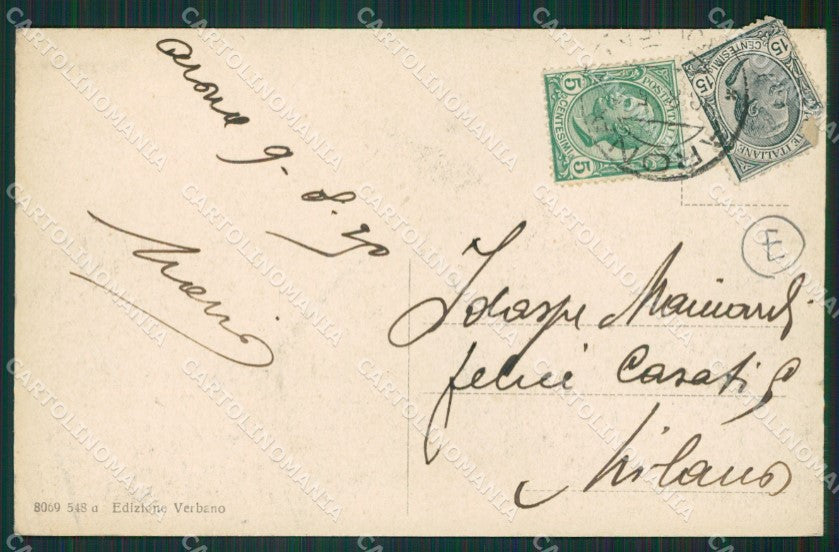 Arona
9. 8. 20
Mario
Idaspe Mainardi
felice Casati 9
Milano
8069 548 a Edizione Verbano
5 CENTESIMI 5
POSTE ITALIANE
CENTESIMI 15
15
POSTE ITALIANE
ARONA
E
CARTOLINOMANIA